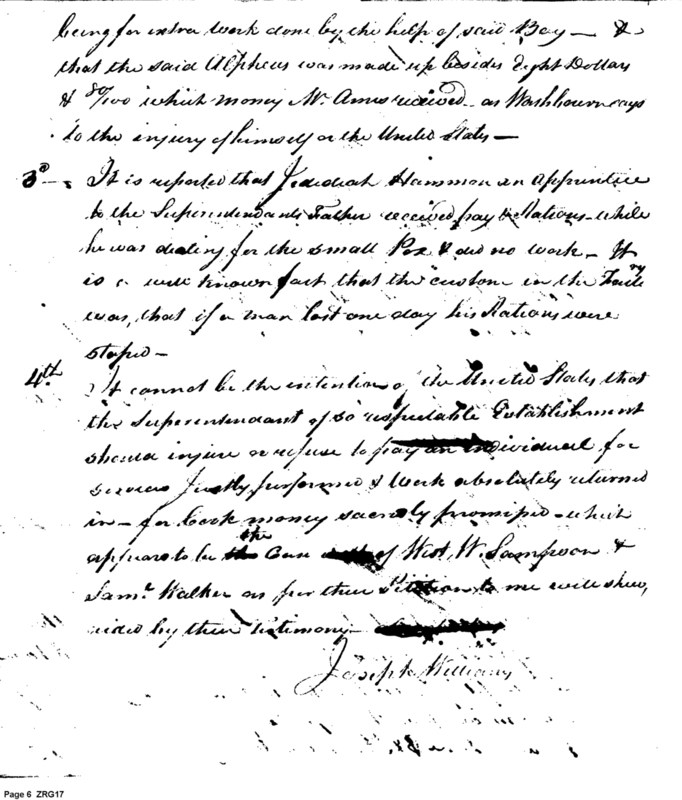 being for extra work done by the help of said Boy — &
that the said Alpheus was made up besides Eight Dollars
& 80/100 which money Mr. Ames received as Washbourn says
to the injury of himself or the United States —
3d — It is reported that Jedediah Hammon an Apprentice
to the Superendants Father received pay & Rations while
he was dieting for the Small Pox & did no work — It
is a well known fact that the custom in the Facto
ry
was, that if a man lost one day his Rations were
stoped —
4th It cannot be the intention of the United States that
the Superentendant of so respectable Establishment
should injure or refuse to pay an individual for
services Justly performed & Work absolutely returned
in — for Cook money sacredly promised — which
appears to be the Case of West, W. Sampson &
Saml. Walker as per their Petition to me will shew,
aided by their testimony —
Joseph Williams
Page 6 ZRG17